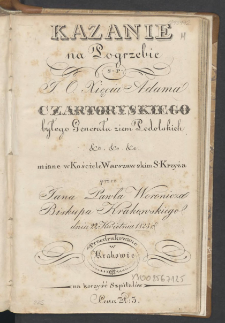 KAZANIE
na Pogrzebie
Ś. P.
J. O. Xięcia Adama
CZARTORYSKIEGO
byłego Generała ziem Podolskich
&c. &c. &c.
miane w Kościele Warszawskim S. Krzyża
przez
Jana Pawła Woronicza
Biskupa Krakowskiego
dnia Kwietnia 1823
Przedrukowane
w
Krakowie
na korzyść Szpitalów
Cena Zł. 3.